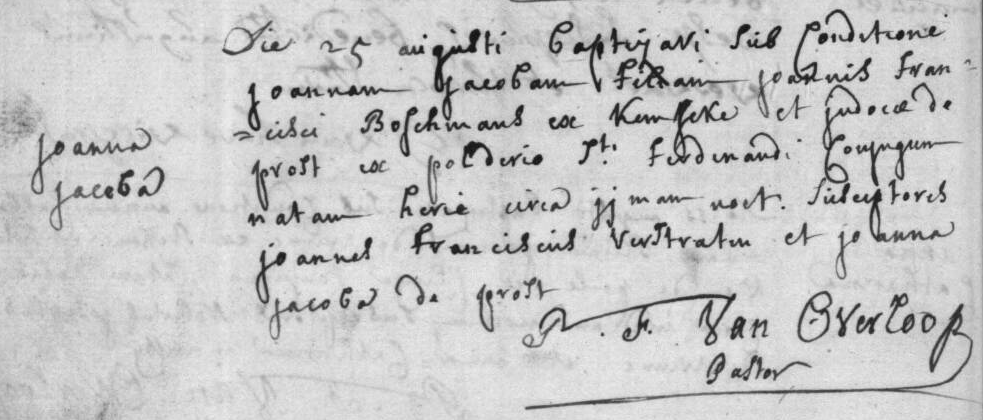 Die 25 augusti baptizavi sub conditione
joannam jacobam filiam joannis fran=
=cisci Boschmans ex Kemseke et judocæ de
prost ex polderio Sti ferdinandi conjugum
joanna
jacoba
natam herie circa jjmam noct. susceptores
joannes franciscus verstraten et joanna
jacoba de prost
F. Van Overloop
Pastor